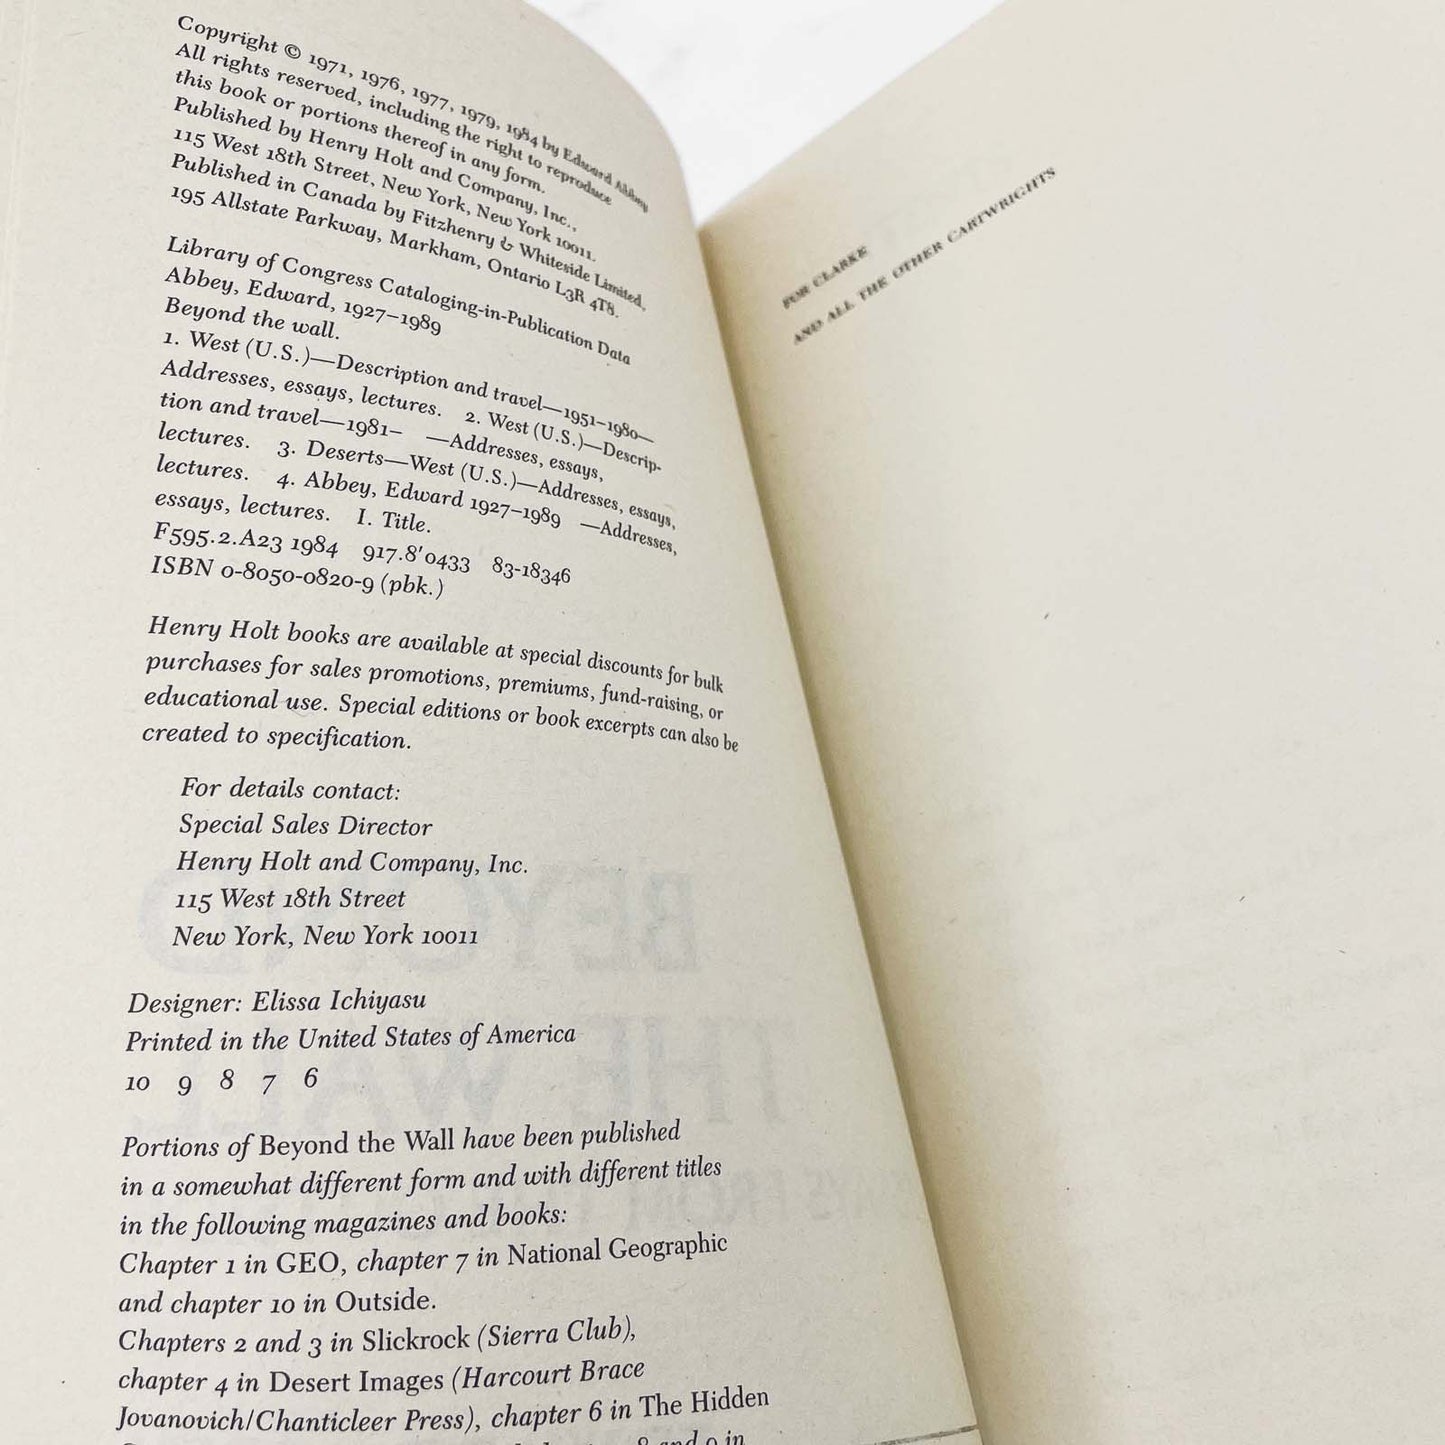 Copyright © 1971, 1976, 1977, 1979, 1984 by Edward Abbey
All rights reserved, including the right to reproduce
this book or portions thereof in any form.
Published by Henry Holt and Company, Inc.,
115 West 18th Street, New York, New York 10011.
Published in Canada by Fitzhenry & Whiteside Limited,
195 Allstate Parkway, Markham, Ontario L3R 4T8.
Library of Congress Cataloging-in-Publication Data
Abbey, Edward, 1927–1989
Beyond the wall.
1. West (U.S.)—Description and travel—1951–1980—
Addresses, essays, lectures. 2. West (U.S.)—Descrip-
tion and travel—1981– —Addresses, essays,
lectures. 3. Deserts—West (U.S.)—Addresses, essays,
lectures. 4. Abbey, Edward 1927–1989 —Addresses,
essays, lectures. I. Title.
F595.2.A23 1984 917.8'0433 83-18346
ISBN 0-8050-0820-9 (pbk.)
Henry Holt books are available at special discounts for bulk
purchases for sales promotions, premiums, fund-raising, or
educational use. Special editions or book excerpts can also be
created to specification.
For details contact:
Special Sales Director
Henry Holt and Company, Inc.
115 West 18th Street
New York, New York 10011
Designer: Elissa Ichiyasu
Printed in the United States of America
10 9 8 7 6
Portions of Beyond the Wall have been published
in a somewhat different form and with different titles
in the following magazines and books:
Chapter 1 in GEO, chapter 7 in National Geographic
and chapter 10 in Outside.
Chapters 2 and 3 in Slickrock (Sierra Club),
chapter 4 in Desert Images (Harcourt Brace
Jovanovich/Chanticleer Press), chapter 6 in The Hidden
8 and 9 in
FOR CLARKE
AND ALL THE OTHER CARTWRIGHTS